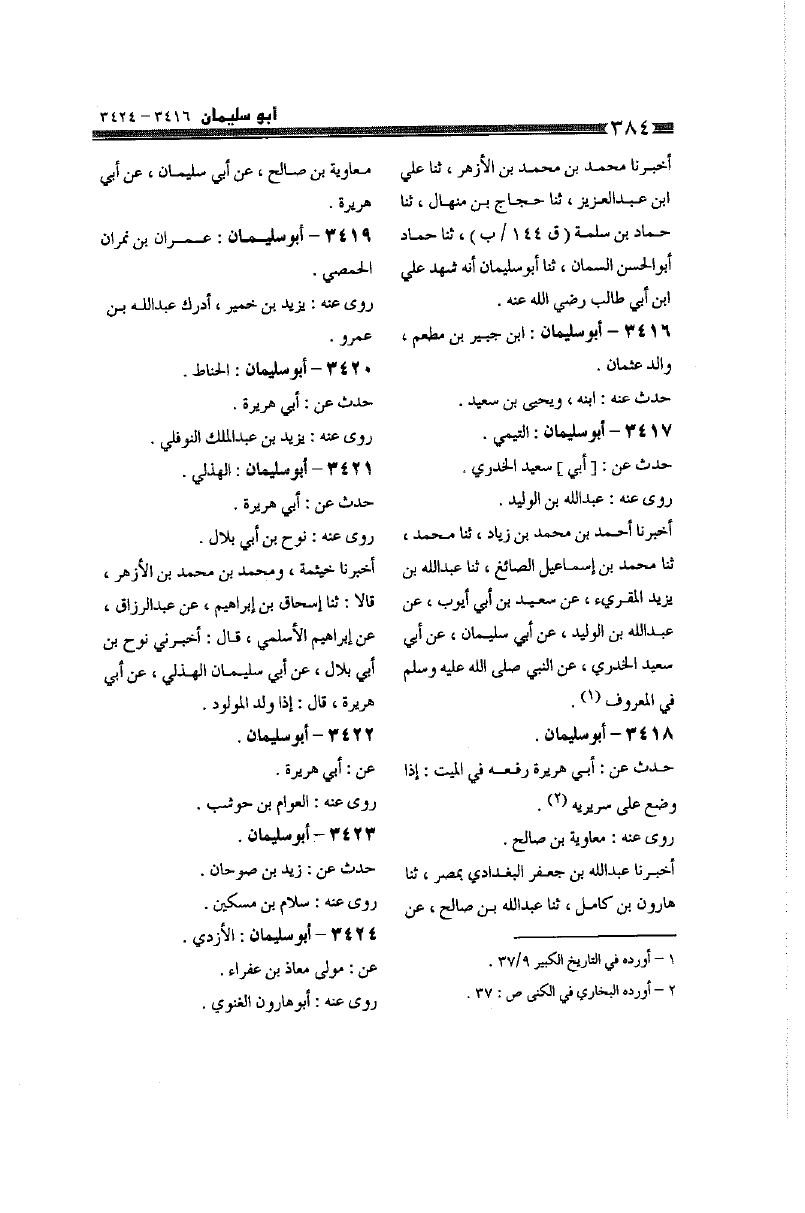 أبو سليمان ٣٤١٦ – ٣٤٢٤
٣٨٤
أخبرنا محمد بن محمد بن الأزهر ، ثنا علي
ابن عبدالعزيز ، ثنا حجاج بن منهال ، ثنا
حماد بن سلمة ( ق ١٤٤ / ب ) ، ثنا حماد
أبوالحسن السمان ، ثنا أبوسليمان أنه شهد علي
ابن أبي طالب رضي الله عنه .
٣٤١٦ – أبوسليمان : ابن جبير بن مطعم ،
والد عثمان .
حدث عنه : ابنه ، ويحيى بن سعيد .
٣٤١٧ – أبوسليمان : التيمي .
حدث عن : [ أبي ] سعيد الخدري .
روى عنه : عبدالله بن الوليد .
أخبرنا أحمد بن محمد بن زياد ، ثنا محمد ،
ثنا محمد بن إسماعيل الصائغ ، ثنا عبدالله بن
يزيد المقريء ، عن سعيد بن أبي أيوب ، عن
عبدالله بن الوليد ، عن أبي سليمان ، عن أبي
سعيد الخدري ، عن النبي صلى الله عليه وسلم
في المعروف (١) .
٣٤١٨ – أبوسليمان .
حدث عن : أبي هريرة رفعه في الميت : إذا
وضع على سريره (٢) .
روى عنه : معاوية بن صالح .
أخبرنا عبدالله بن جعفر البغدادي بمصر ، ثنا
هارون بن كامل ، ثنا عبدالله بن صالح ، عن
١ – أورده في التاريخ الكبير ٣٧/٩ .
٢ – أورده البخاري في الكنى ص : ٣٧ .
معاوية بن صالح ، عن أبي سليمان ، عن أبي
هريرة .
٣٤١٩ – أبوسليمان : عمران بن نمران
الحمصي .
روى عنه : يزيد بن خمير ، أدرك عبدالله بن
عمرو .
٣٤٢٠ – أبوسليمان : الحناط .
حدث عن : أبي هريرة .
روى عنه : يزيد بن عبدالملك النوفلي .
٣٤٢١ – أبوسليمان : الهذلي .
حدث عن : أبي هريرة .
روى عنه : نوح بن أبي بلال .
أخبرنا خيثمة ، ومحمد بن محمد بن الأزهر ،
قالا : ثنا إسحاق بن إبراهيم ، عن عبدالرزاق ،
عن إبراهيم الأسلمي ، قال : أخبرني نوح بن
أبي بلال ، عن أبي سليمان الهذلي ، عن أبي
هريرة ، قال : إذا ولد المولود .
٣٤٢٢ – أبوسليمان .
عن : أبي هريرة .
روى عنه : العوام بن حوشب .
٣٤٢٣ – أبوسليمان .
حدث عن : زيد بن صوحان .
روى عنه : سلام بن مسكين .
٣٤٢٤ – أبوسليمان : الأزدي .
عن : مولى معاذ بن عفراء .
روى عنه : أبوهارون الغنوي .